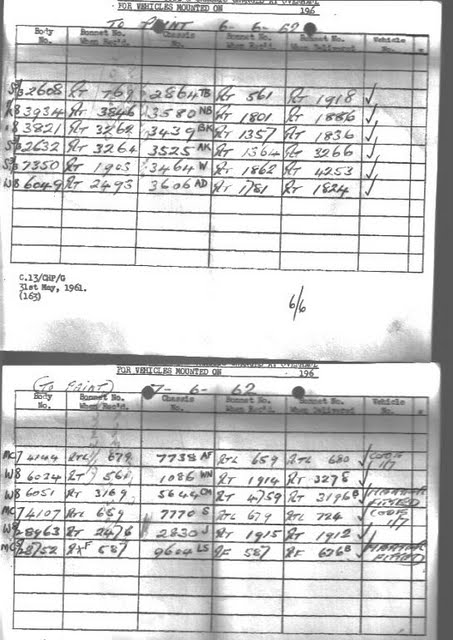 FOR VEHICLES MOUNTED ON 196
TO PAINT 6-6-62
Body No. Bonnet No. When Rec'd. Chassis No. Bonnet No. When Rec'd. Bonnet No. When Delivered Vehicle No.
2608 RT 769 2864 TB RT 561 RT 1918 ✓
3934 RT 3846 3580 NB RT 1801 RT 1886 ✓
3821 RT 3262 3439 BK RT 1357 RT 1836 ✓
2632 RT 3264 3525 AK RT 1364 RT 3266 ✓
7350 RT 1903 3464 W RT 1862 RT 4253 ✓
W8 6049 RT 2493 3606 AD RT 1781 RT 1824 ✓
C.13/CHP/G
31st May, 1961.
(163)
6/6
FOR VEHICLES MOUNTED ON 196
(TO PAINT) 7-6-62
Body No. Bonnet No. When Rec'd. Chassis No. Bonnet No. When Rec'd. Bonnet No. When Delivered Vehicle No.
4144 RTL 679 7738 AF RTL 659 RTL 680
W8 6024 RT 561 1086 WN RT 1914 RT 3278 ✓
W8 6051 RT 3169 5644 CM RT 4759 RT 3196 FITTED
4107 RTL 659 7770 S RTL 679 RTL 724
28963 RT 2476 2830 J RT 1915 RT 1912 ✓
RF 587 9604 LS RF 587 RF 626 B FITTED